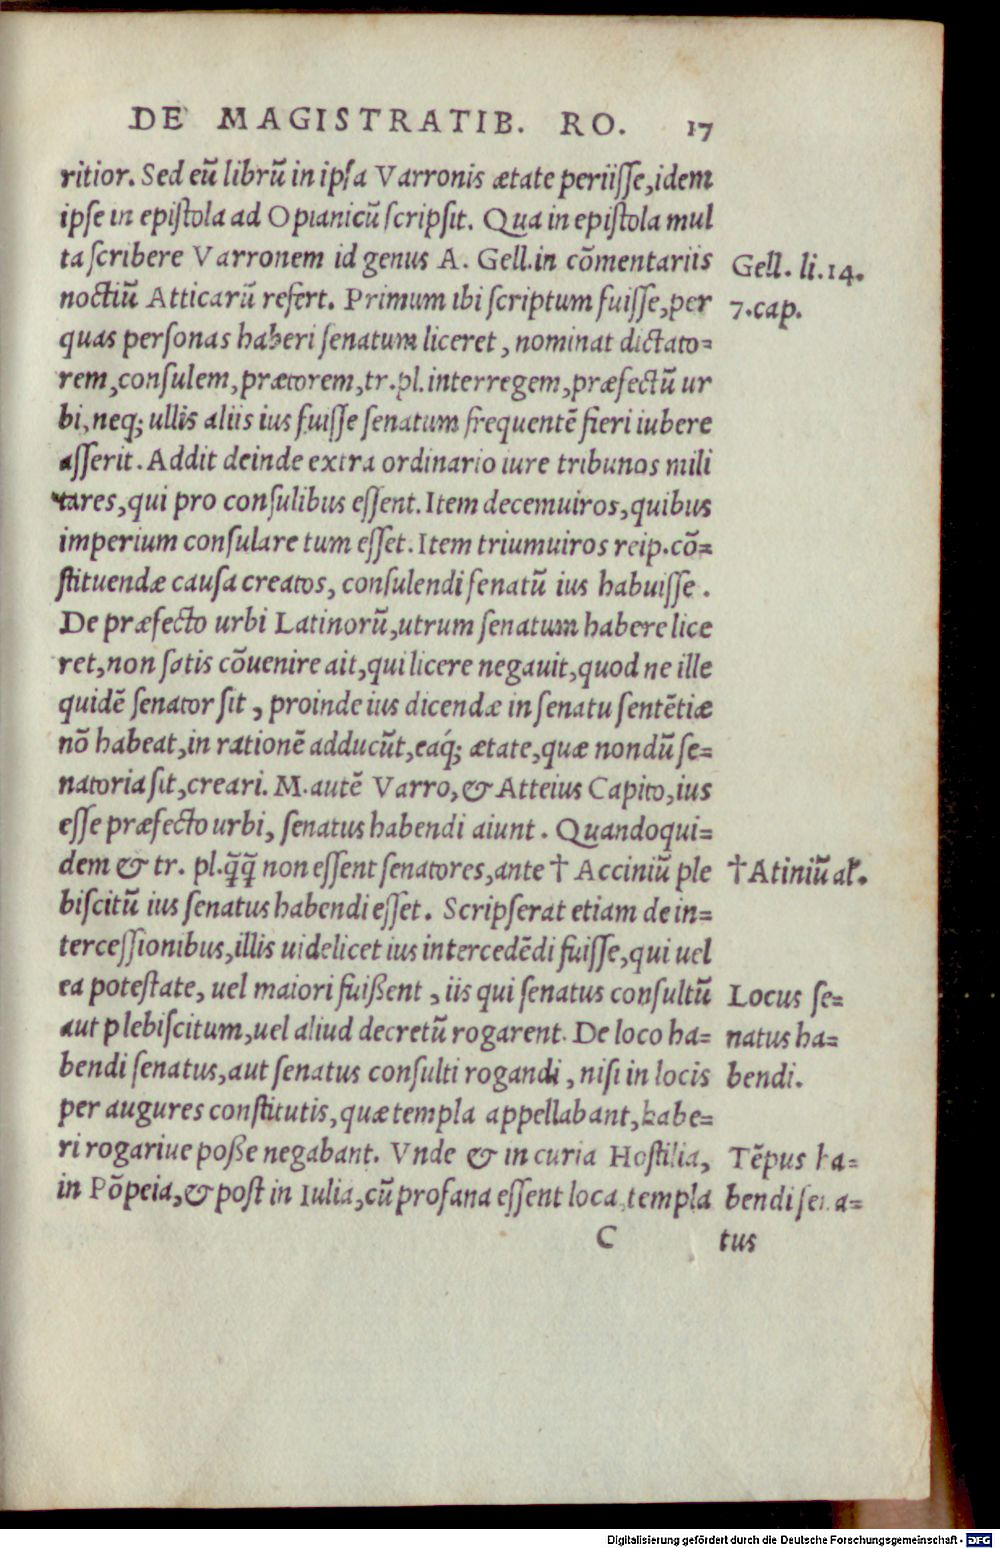 DE MAGISTRATIB. RO. 17
ritior. Sed eũ librũ in ipſa Varronis ætate periiſſe, idem
ipſe in epiſtola ad Opianicũ ſcripſit. Qua in epiſtola mul
ta ſcribere Varronem id genus A. Gell. in cõmentariis
noctiũ Atticarũ refert. Primum ibi ſcriptum fuiſſe, per
quas perſonas haberi ſenatum liceret, nominat dictato=
rem, conſulem, prætorem, tr. pl. interregem, præfectũ ur
bi, neq; ullis aliis ius fuiſſe ſenatum frequentẽ fieri iubere
aſſerit. Addit deinde extra ordinario iure tribunos mili
tares, qui pro conſulibus eſſent. Item decemuiros, quibus
imperium conſulare tum eſſet. Item triumuiros reip. cõ=
ſtituendæ cauſa creatos, conſulendi ſenatũ ius habuiſſe.
De præfecto urbi Latinorũ, utrum ſenatum habere lice
ret, non ſatis cõuenire ait, qui licere negauit, quod ne ille
quidẽ ſenator ſit, proinde ius dicendæ in ſenatu ſentẽtiæ
nõ habeat, in rationẽ adducũt, eaq́; ætate, quæ nondũ ſe=
natoria ſit, creari. M. autẽ Varro, & Atteius Capito, ius
eſſe præfecto urbi, ſenatus habendi aiunt. Quandoqui=
dem & tr. pl. q̃q̃ non eſſent ſenatores, ante † Acciniũ ple
biſcitũ ius ſenatus habendi eſſet. Scripſerat etiam de in=
terceſſionibus, illis uidelicet ius intercedẽdi fuiſſe, qui uel
ea poteſtate, uel maiori fuißent, iis qui ſenatus conſultũ
aut plebiſcitum, uel aliud decretũ rogarent. De loco ha=
bendi ſenatus, aut ſenatus conſulti rogandi, niſi in locis
per augures conſtitutis, quæ templa appellabant, habe=
ri rogariue poße negabant. Vnde & in curia Hoſtilia,
in Põpeia, & poſt in Iulia, cũ profana eſſent loca, templa
C
Gell. li. 14.
7. cap.
† Atiniũ al.
Locus ſe=
natus ha=
bendi.
Tẽpus ha=
bendi ſena=
tus
Digitalisierung gefördert durch die Deutsche Forschungsgemeinschaft - DFG